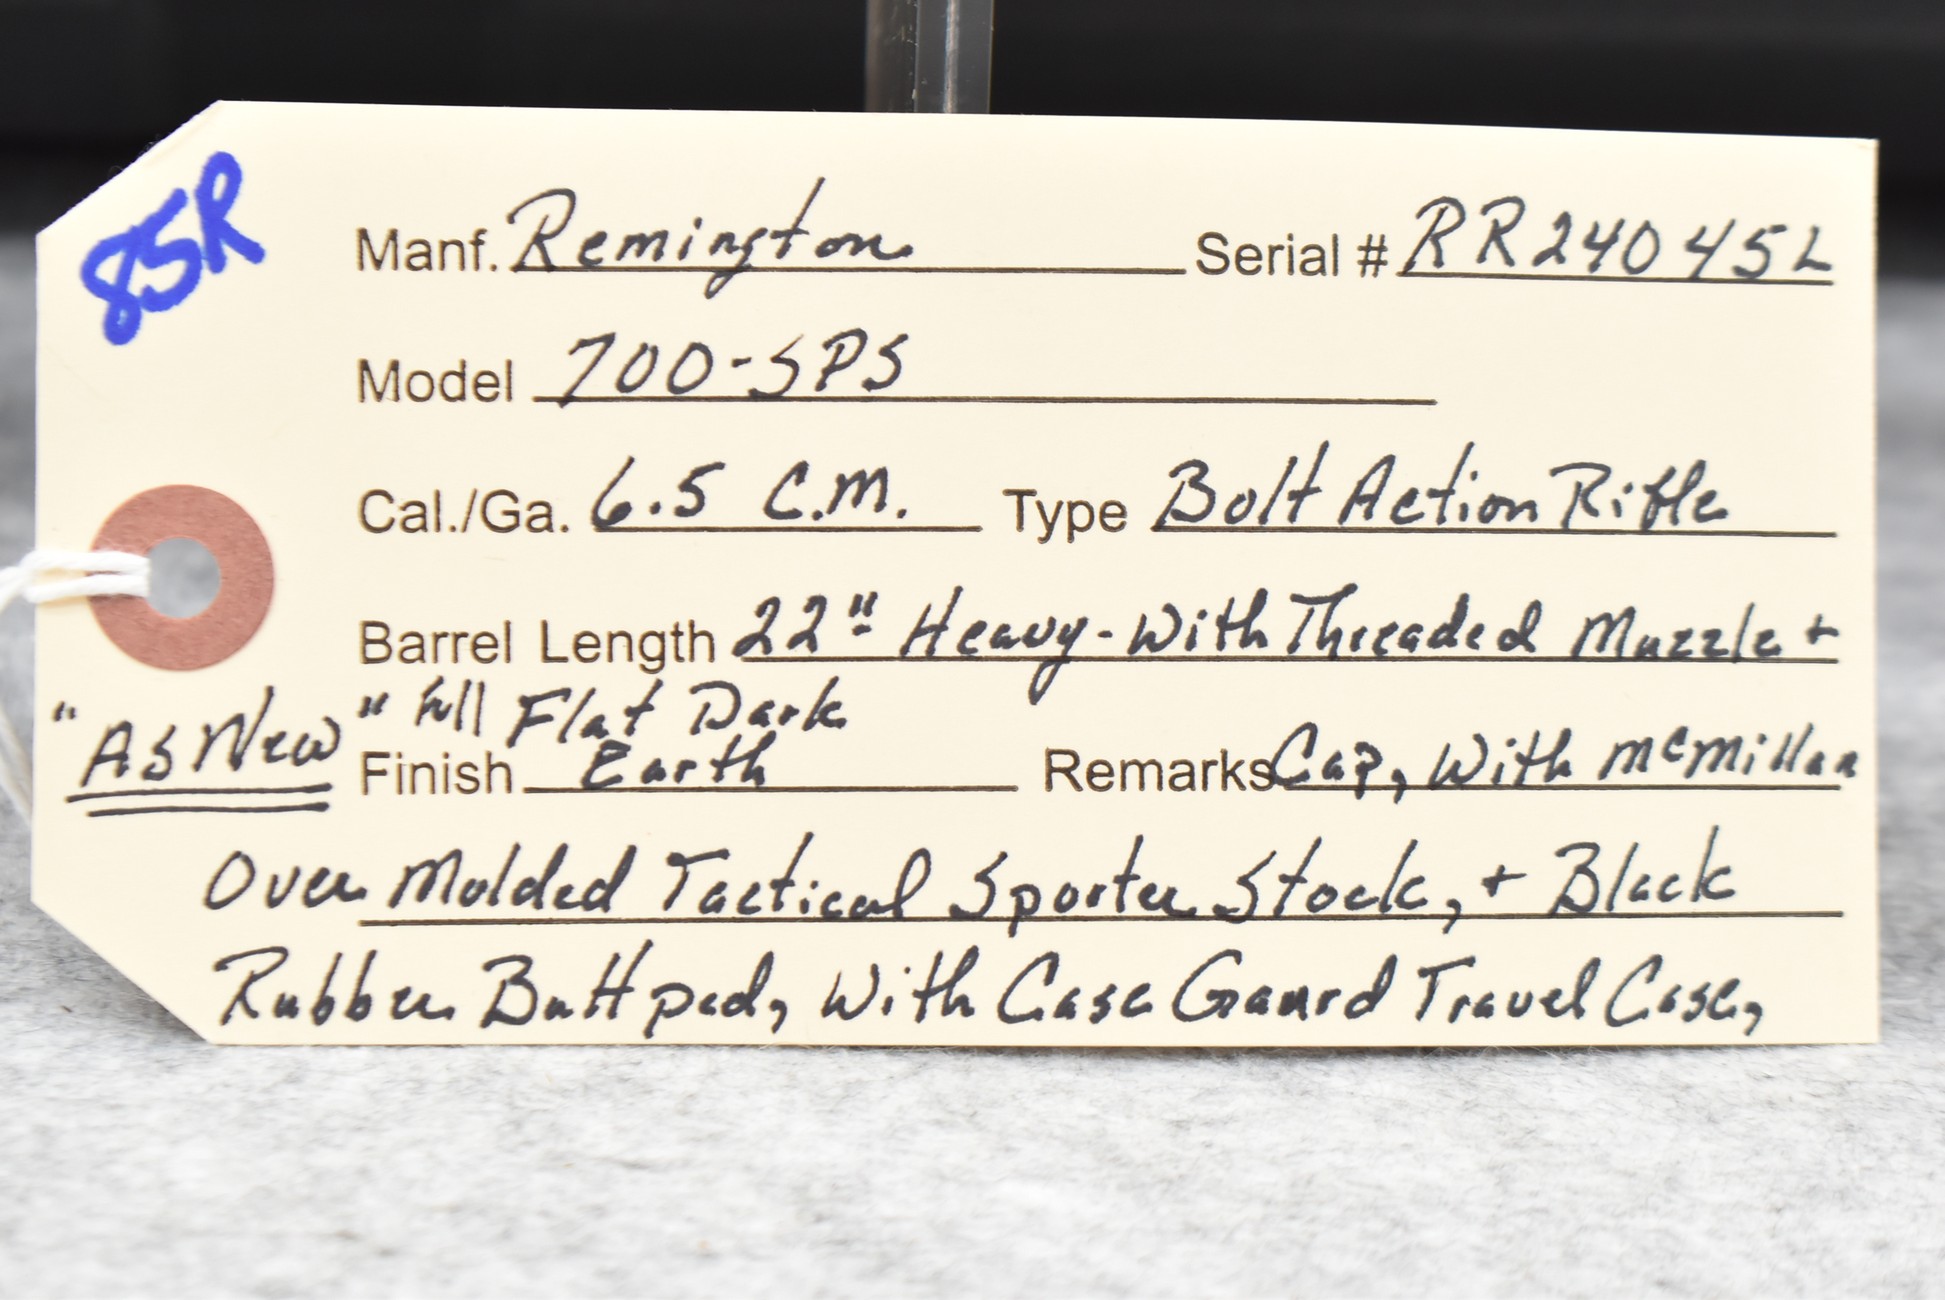 85R
Manf. Remington Serial # RR24045L
Model 700-SPS
Cal./Ga. 6.5 C.M. Type Bolt Action Rifle
Barrel Length 22" Heavy - With Threaded Muzzle +
"As New" Full Flat Dark
Finish Earth Remarks Cap, With McMillan
Over Molded Tactical Sporter Stock, + Black
Rubber Butt pad, With Case Gaurd Travel Case,